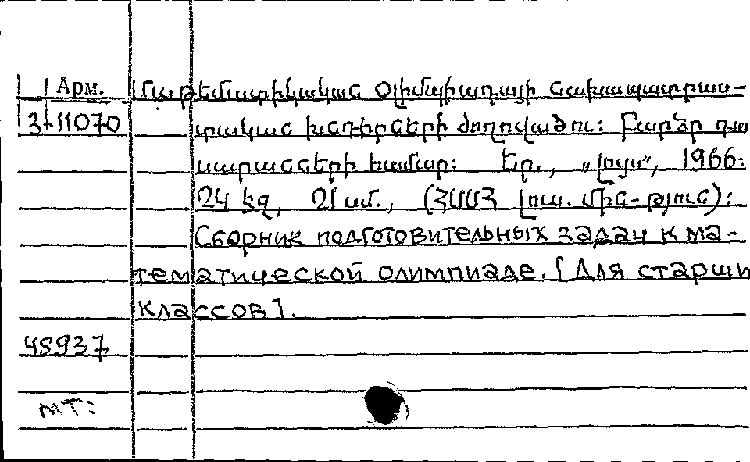 Арм. Մաթեմատիկական Օլիմպիադայի նախապատրաս-
3-11070 տական խնդիրների ժողովածու: Բարձր դա
սարանների համար: Եր., „Լույս", 1966.
24 էջ, 21 սմ., (ՀՍՍՀ լուս. մին-թյուն):
Сборник подготовительных задач к ма-
тематической олимпиаде. [Для старши
классов].
48937
МТ: